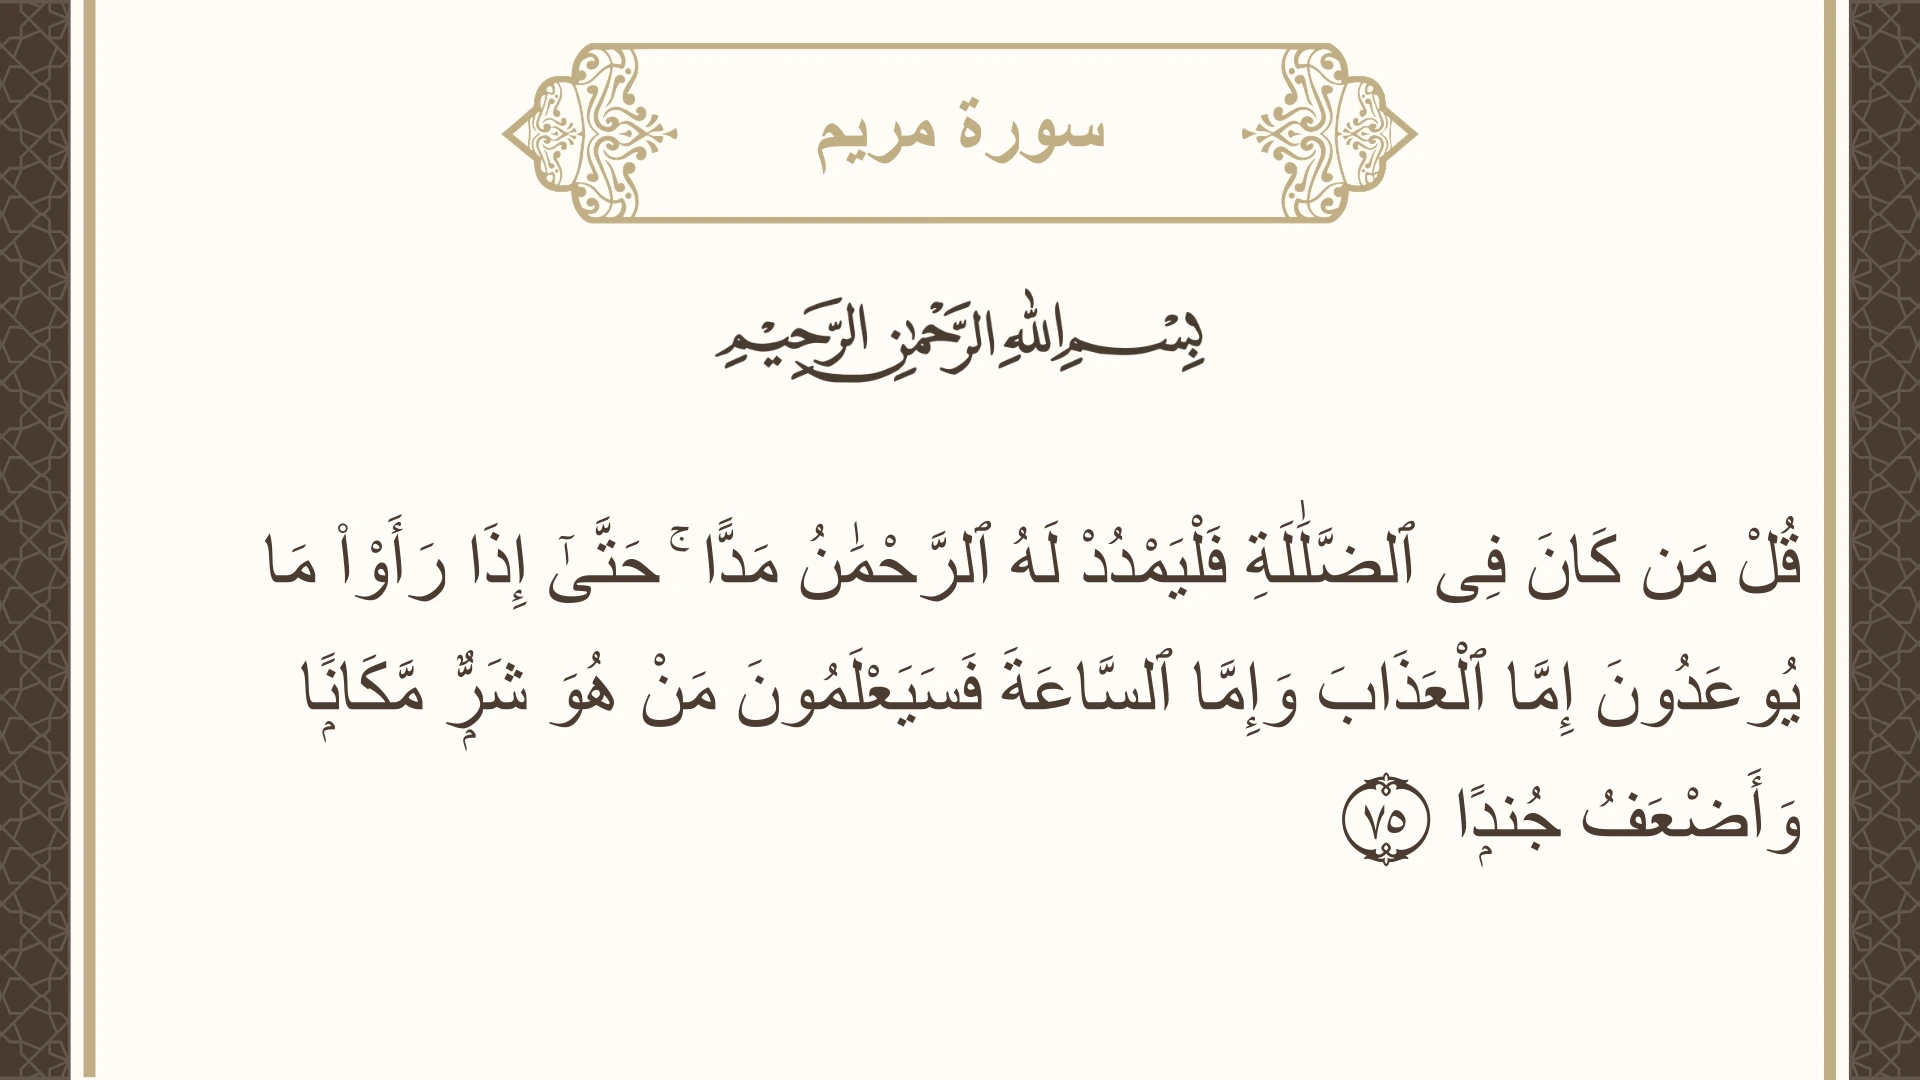 سورة مريم
بِسْمِ اللهِ الرَّحْمٰنِ الرَّحِيْمِ
قُلْ مَن كَانَ فِى ٱلضَّلَٰلَةِ فَلْيَمْدُدْ لَهُ ٱلرَّحْمَٰنُ مَدًّا ۚ حَتَّىٰٓ إِذَا رَأَوْا۟ مَا
يُوعَدُونَ إِمَّا ٱلْعَذَابَ وَإِمَّا ٱلسَّاعَةَ فَسَيَعْلَمُونَ مَنْ هُوَ شَرٌّۭ مَّكَانًۭا
وَأَضْعَفُ جُندًۭا ٧٥